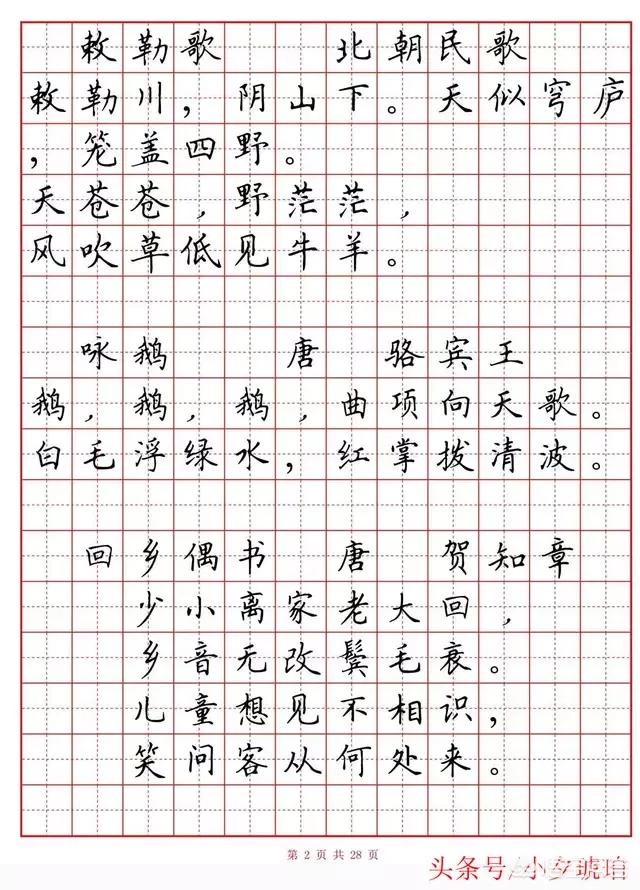 敕勒歌 北朝民歌
敕勒川，阴山下。天似穹庐
，笼盖四野。
天苍苍，野茫茫，
风吹草低见牛羊。
咏鹅 唐 骆宾王
鹅，鹅，鹅，曲项向天歌。
白毛浮绿水，红掌拨清波。
回乡偶书 唐 贺知章
少小离家老大回，
乡音无改鬓毛衰。
儿童想见不相识，
笑问客从何处来。
第 2 页 共 28 页
头条号/小夕琥珀